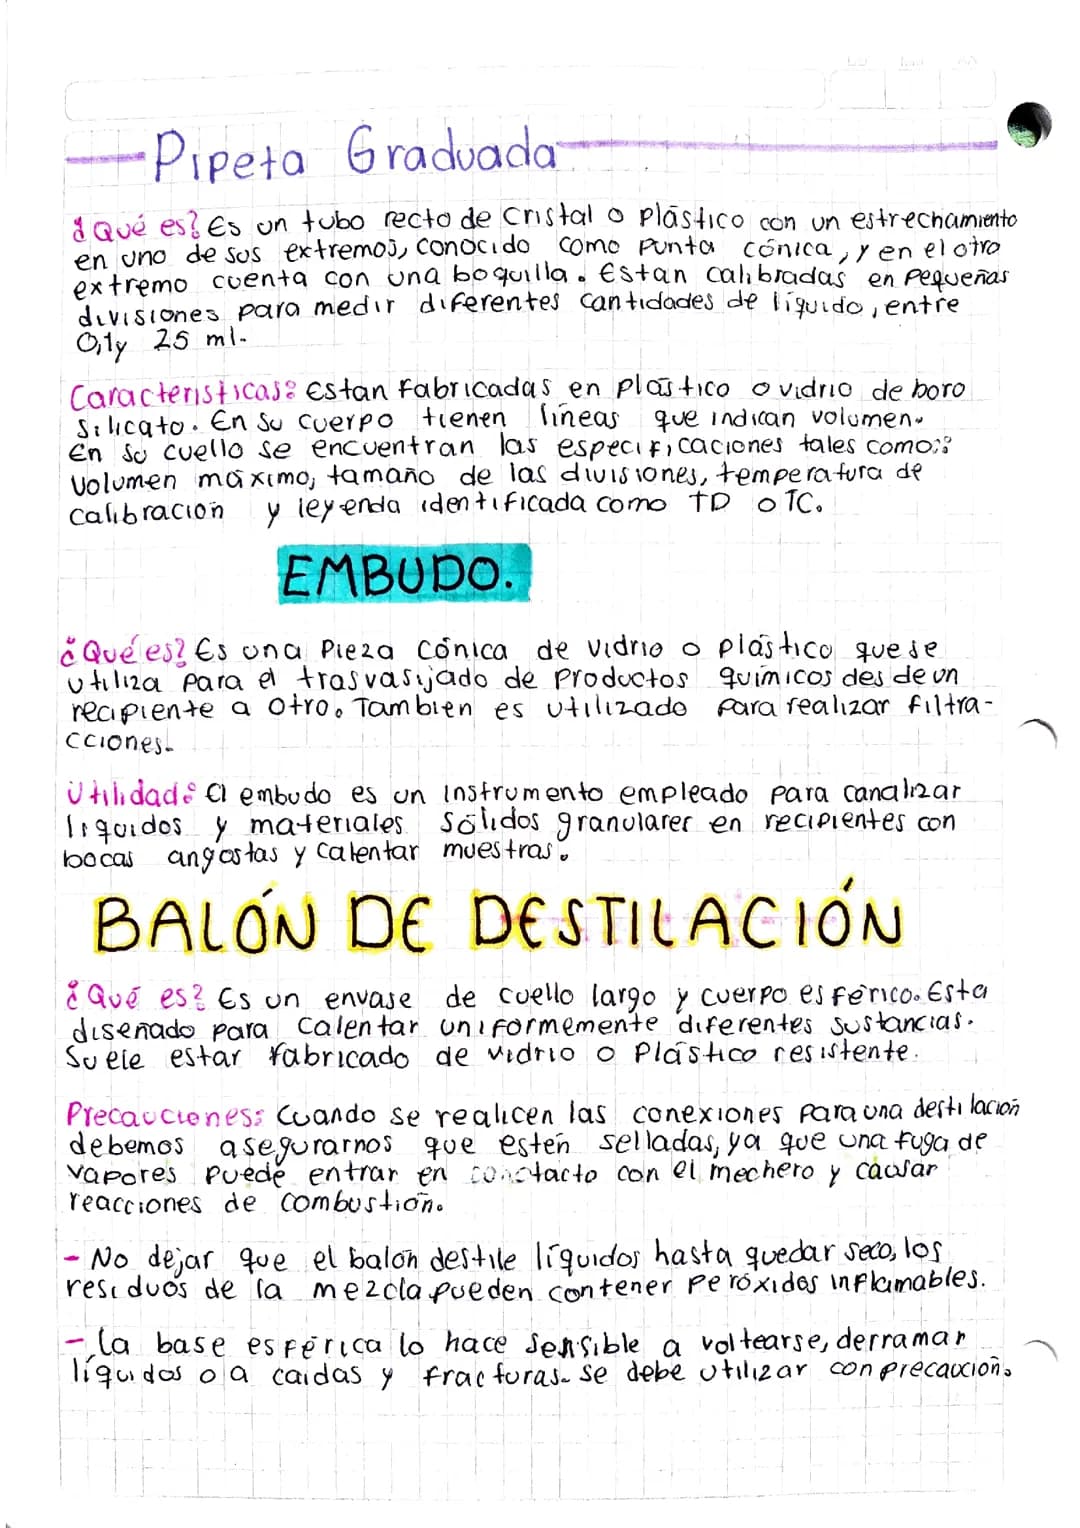 Pipeta Graduada
¿Qué es? Es un tubo recto de cristal o plástico con un estrechamiento
en uno de sus extremos, conocido como punta cónica, y en el otro
extremo cuenta con una boquilla. Estan calibradas en pequeñas
divisiones para medir diferentes cantidades de líquido, entre
0,1y 25 ml.
Caracteristicas: Estan fabricadas en plástico o vidrio de boro
silicato. En su cuerpo tienen líneas que indican volumen.
En su cuello se encuentran las especificaciones tales como:
Volumen máximo, tamaño de las divisiones, temperatura de
calibración y leyenda identificada como TD o TC.
EMBUDO.
¿Qué es? Es una pieza cónica de vidrio o plástico que se
utiliza para el trasvasijado de productos químicos desde un
recipiente a otro. Tambien es utilizado para realizar filtra-
cciones.
Utilidad: El embudo es un instrumento empleado para canalizar
líquidos y materiales sólidos granularer en recipientes con
bocas angostas y calentar muestras.
BALÓN DE DESTILACIÓN
¿Qué es? Es un envase de cuello largo y cuerpo esférico. Esta
diseñado para calentar uniformemente diferentes sustancias.
Suele estar fabricado de vidrio o plástico resistente.
Precauciones: Cuando se realicen las conexiones para una destilación
debemos asegurarnos que estén selladas, ya que una fuga de
vapores puede entrar en conctacto con el mechero y causar
reacciones de combustión.
- No dejar que el balón destile líquidos hasta quedar seco, los
residuos de la mezcla pueden contener peróxidos inflamables.
- La base esférica lo hace sensible a voltearse, derramar
líquidos o a caidas y fracturas. Se debe utilizar con precaución.